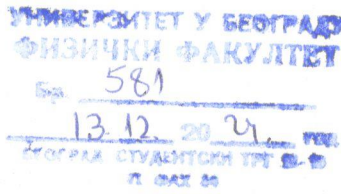 УНИВЕРЗИТЕТ У БЕОГРАДУ
ФИЗИЧКИ ФАКУЛТЕТ
Бр. 581
13. 12. 20 24. год.
БЕОГРАД СТУДЕНТСКИ ТРГ
П. ФАХ